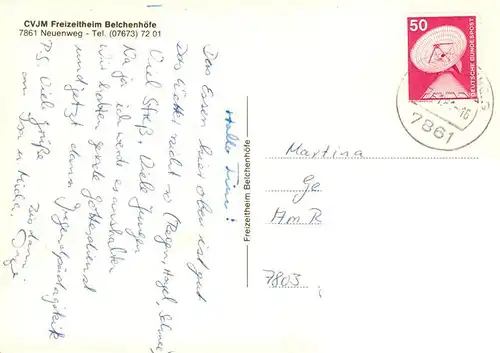 CVJM Freizeitheim Belchenhöfe
7861 Neuenweg - Tel. (07673) 72 01
Hallo
Das Essen hier oben ist gut
das Wetter nicht so (Regen, Hagel, Schnee)
Viel Streß. Viele Jungen
Na ja ich werde es aushalten
Wir hatten gerade Gottesdienst
und jetzt dann Jugendpädagogik
P.S. Viele Grüße
an
Freizeitheim Belchenhöfe
50
DEUTSCHE BUNDESPOST
7861
Martina
Am R
7803